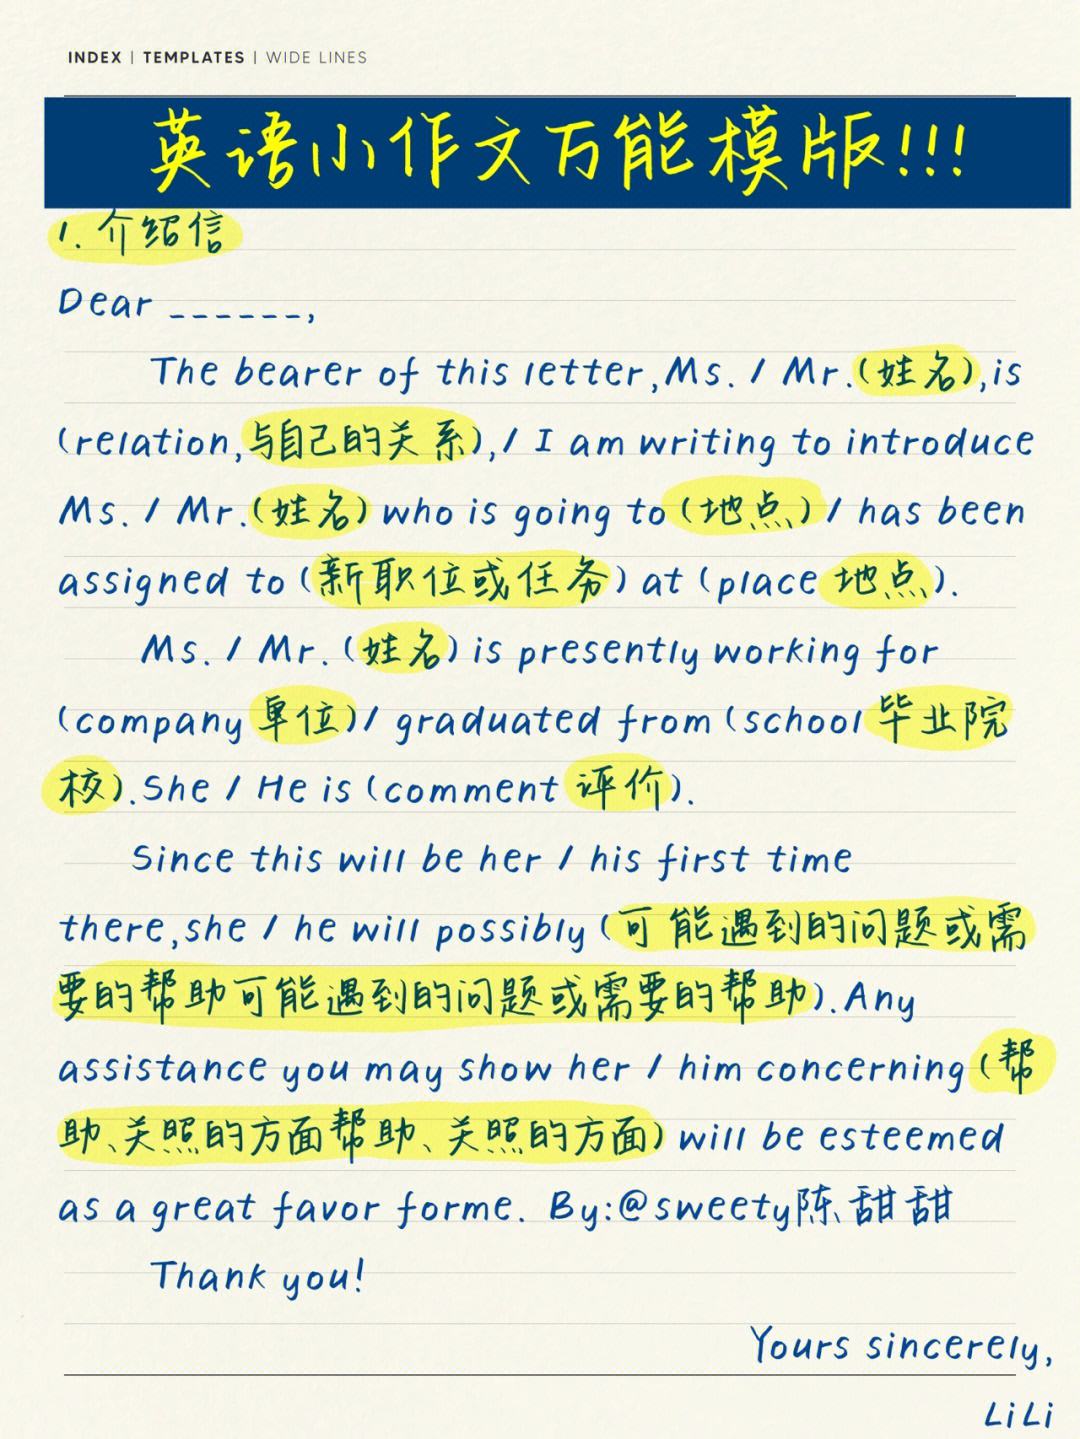 INDEX | TEMPLATES | WIDE LINES
英语小作文万能模版!!!
1. 介绍信
Dear ______,
The bearer of this letter,Ms. / Mr.(姓名),is
(relation,与自己的关系),/ I am writing to introduce
Ms. / Mr.(姓名) who is going to (地点) / has been
assigned to (新职位或任务) at (place 地点).
Ms. / Mr. (姓名) is presently working for
(company 单位)/ graduated from (school 毕业院
校).She / He is (comment 评价).
Since this will be her / his first time
there,she / he will possibly (可能遇到的问题或需
要的帮助可能遇到的问题或需要的帮助).Any
assistance you may show her / him concerning (帮
助、关照的方面帮助、关照的方面) will be esteemed
as a great favor forme. By:@sweety陈甜甜
Thank you!
Yours sincerely,
LiLi